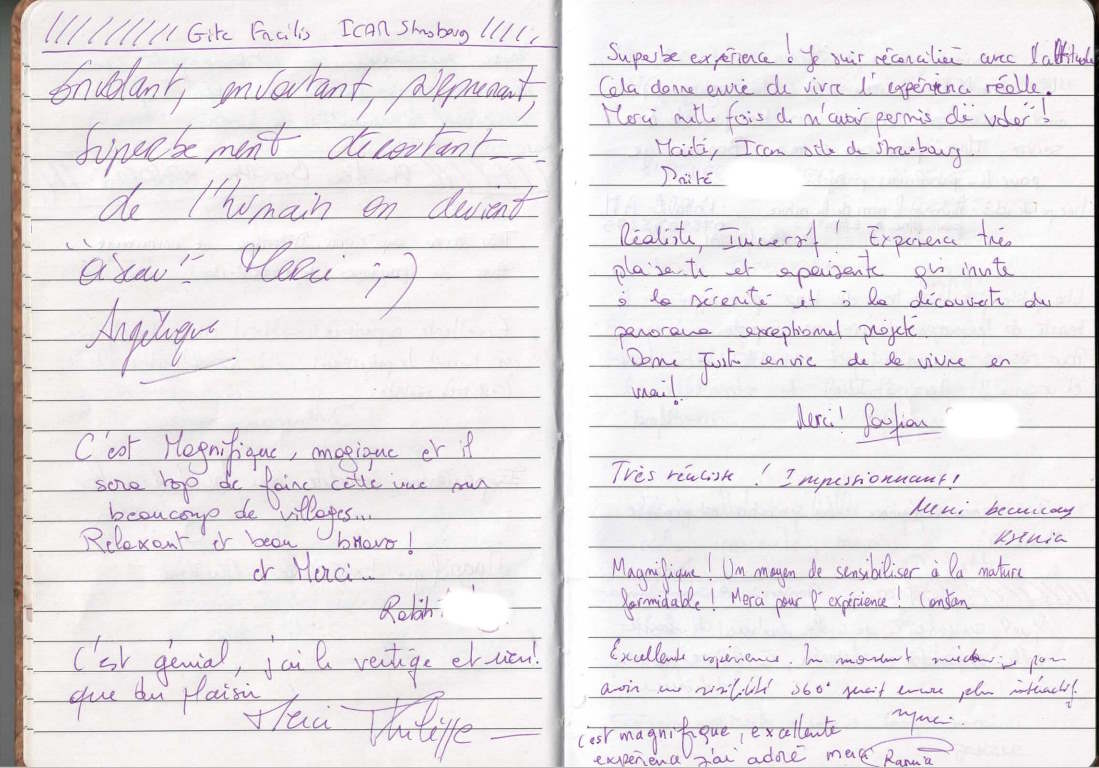 Gite Facilis ICAR Strasbourg
envoutant, surprenant,
Superbement déroutant ----
de l'humain on devient
oiseau" Merci ;-)
Angélique
C'est Magnifique, magique et il
sera top de faire cette vue sur
beaucoup de villages...
Relaxant et beau bravo !
et Merci...
Rabih
C'est génial, j'ai le vertige et rien!
que du plaisir
Merci Philippe
Superbe expérience ! Je suis réconciliée avec l'altitude
Cela donne envie de vivre l'expérience réelle.
Merci mille fois de m'avoir permis de voler !
Maité, Icam site de Strasbourg
Maité
Réaliste, Immersif ! Expérience très
plaisante et apaisante qui invite
à la sérénité et à la découverte du
panorama exceptionnel projeté.
Donne juste envie de le vivre en
vrai!
Merci ! Soufian
Très réaliste ! Impressionnant !
Merci beaucoup
Ksenia
Magnifique ! Un moyen de sensibiliser à la nature
formidable ! Merci pour l'expérience ! Constan
Excellente expérience. Un mouvement pour
avoir une visibilité 360° serait encore plus intéractif.
Merci.
c'est magnifique, excellente
expérience j'ai adoré merci Rania